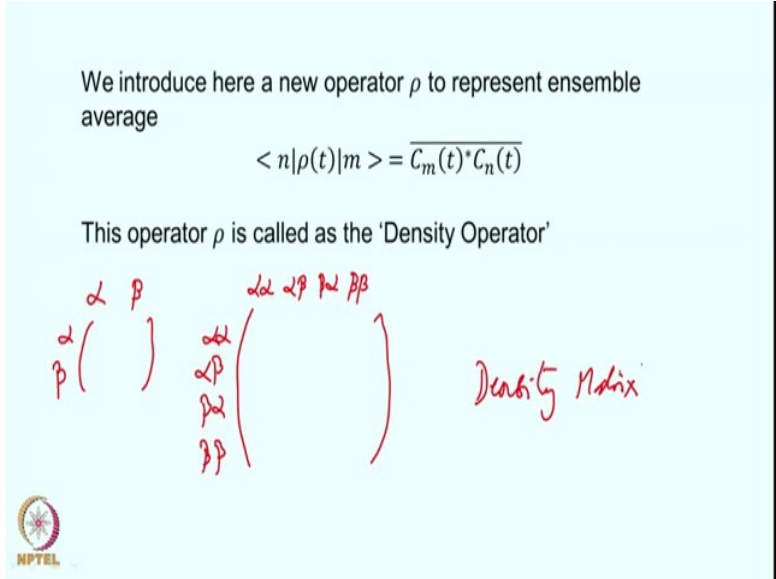 We introduce here a new operator ρ to represent ensemble
average
< n|ρ(t)|m > = \overline{C_m(t)^* C_n(t)}
This operator ρ is called as the 'Density Operator'
α β
αα αβ βα ββ
α
β
αα
αβ
βα
ββ
Density Matrix
NPTEL